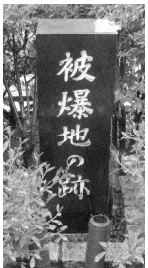 被爆地の跡